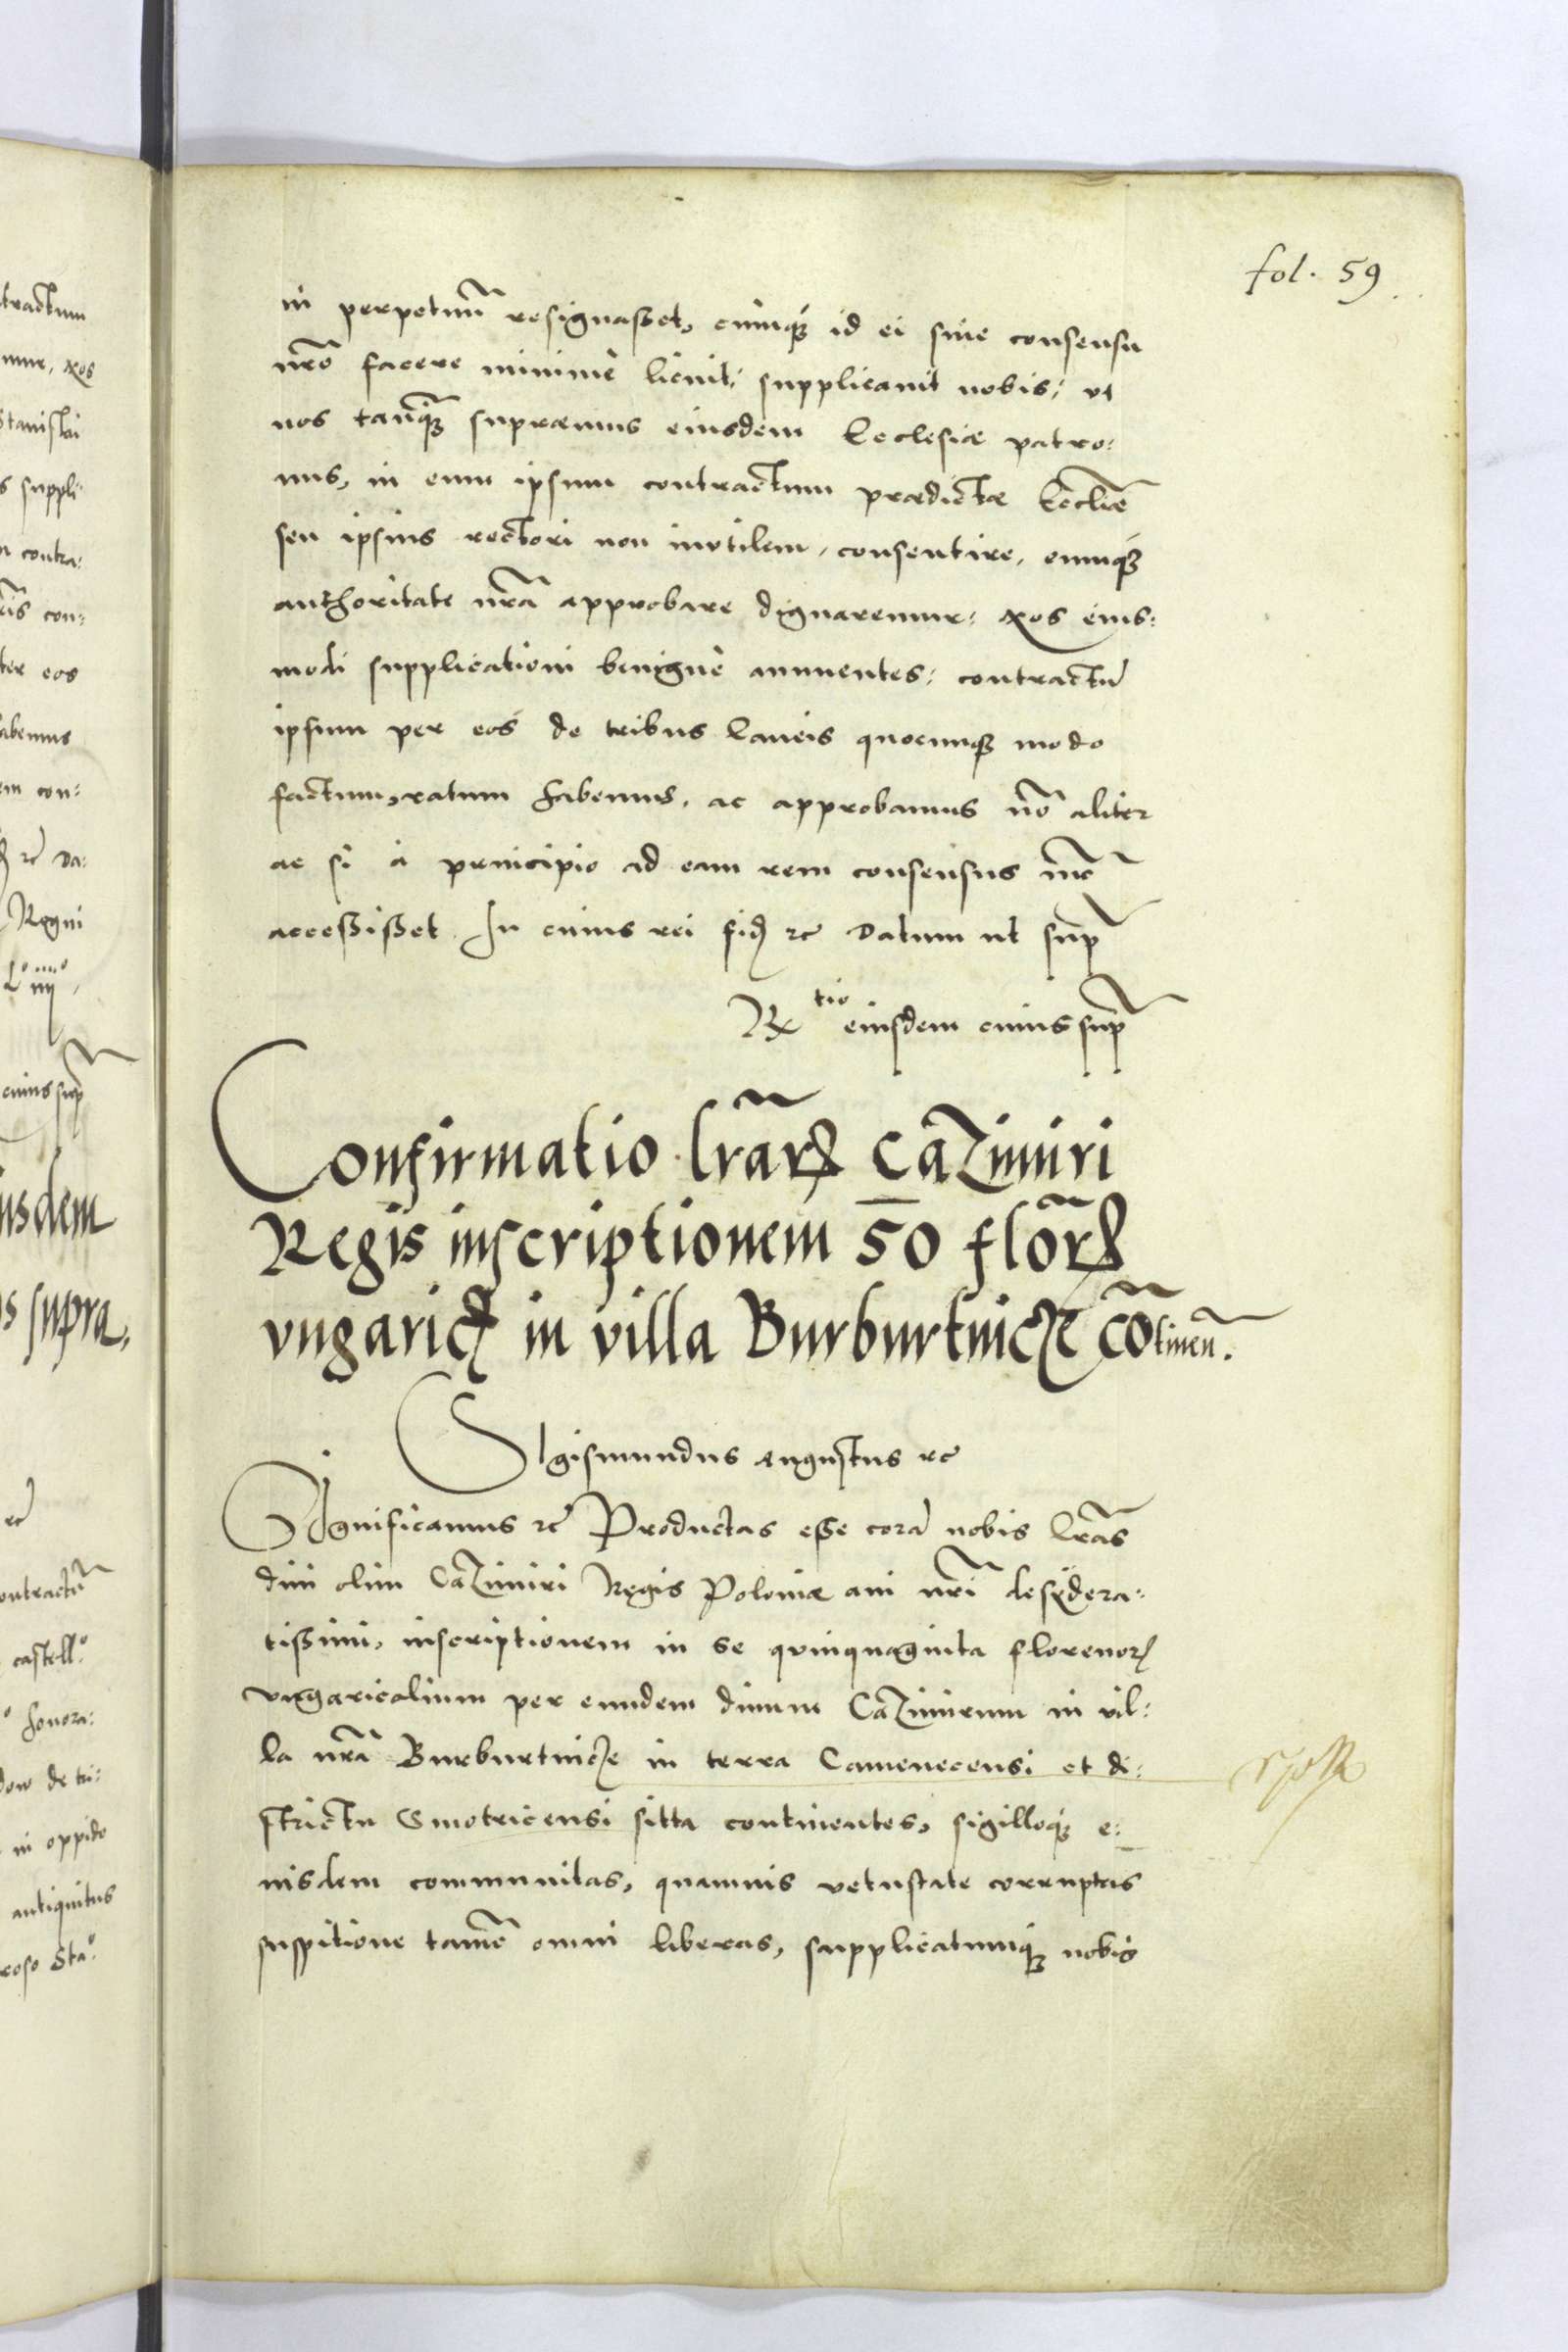 fol. 59
in perpetuũ resignasset, cumq; id ei sine consensu
nr̃o facere minimè licuit, supplicauit nobis, vt
nos tanq̃; supræmus eiusdem Ecclesiæ patro:
nus, in eum ipsum contractum prædictæ Eccłiæ
seu ipsius rectori non inutilem, consentire, eumq;
authoritate nr̃a approbare dignaremur: Nos eius:
modi supplicationi benignè annuentes: contractũ
ipsum per eos de tribus laneis quocunq; modo
factum, ratum habemus, ac approbamus nõ aliter
ac si à principio ad eam rem consensus nr̃
accessisset. In cuius rei fid. &c Datum ut sup̃
R^tio eiusdem cuius sup̃
Confirmatio lr̃aꝝ Cazimiri
Regis inscriptionem 50 flõrꝝ
vngaricꝝ in villa Burburtnicze cõtineñ.
Sigismundus augustus &c
Significamus &c Productas esse corã nobis lr̃as
diui olim Cazimiri Regis Poloniæ aui nr̃i desydera:
tissimi, inscriptionem in se quinquaginta florenoꝝ
vngaricalium per eundem diuum Cazimirum in vil:
la nr̃a Burburtnicze in terra Camenecensi et di:
strictu Smotricensi sitta continentes, sigilloq; e:
iusdem communitas, quamuis vetustate corruptas
suspitione tamẽ omni liberas, supplicatumq; nobis
tractum
Stanislai
s suppli:
n contra:
ris con:
ter eos
abemus
em con:
&c Da:
Regni
cuius sup̃
usdem
s supra,
&c
ontractũ
castell^o
honora:
dow de tri:
in oppido
antiquitus
roso Sta^o